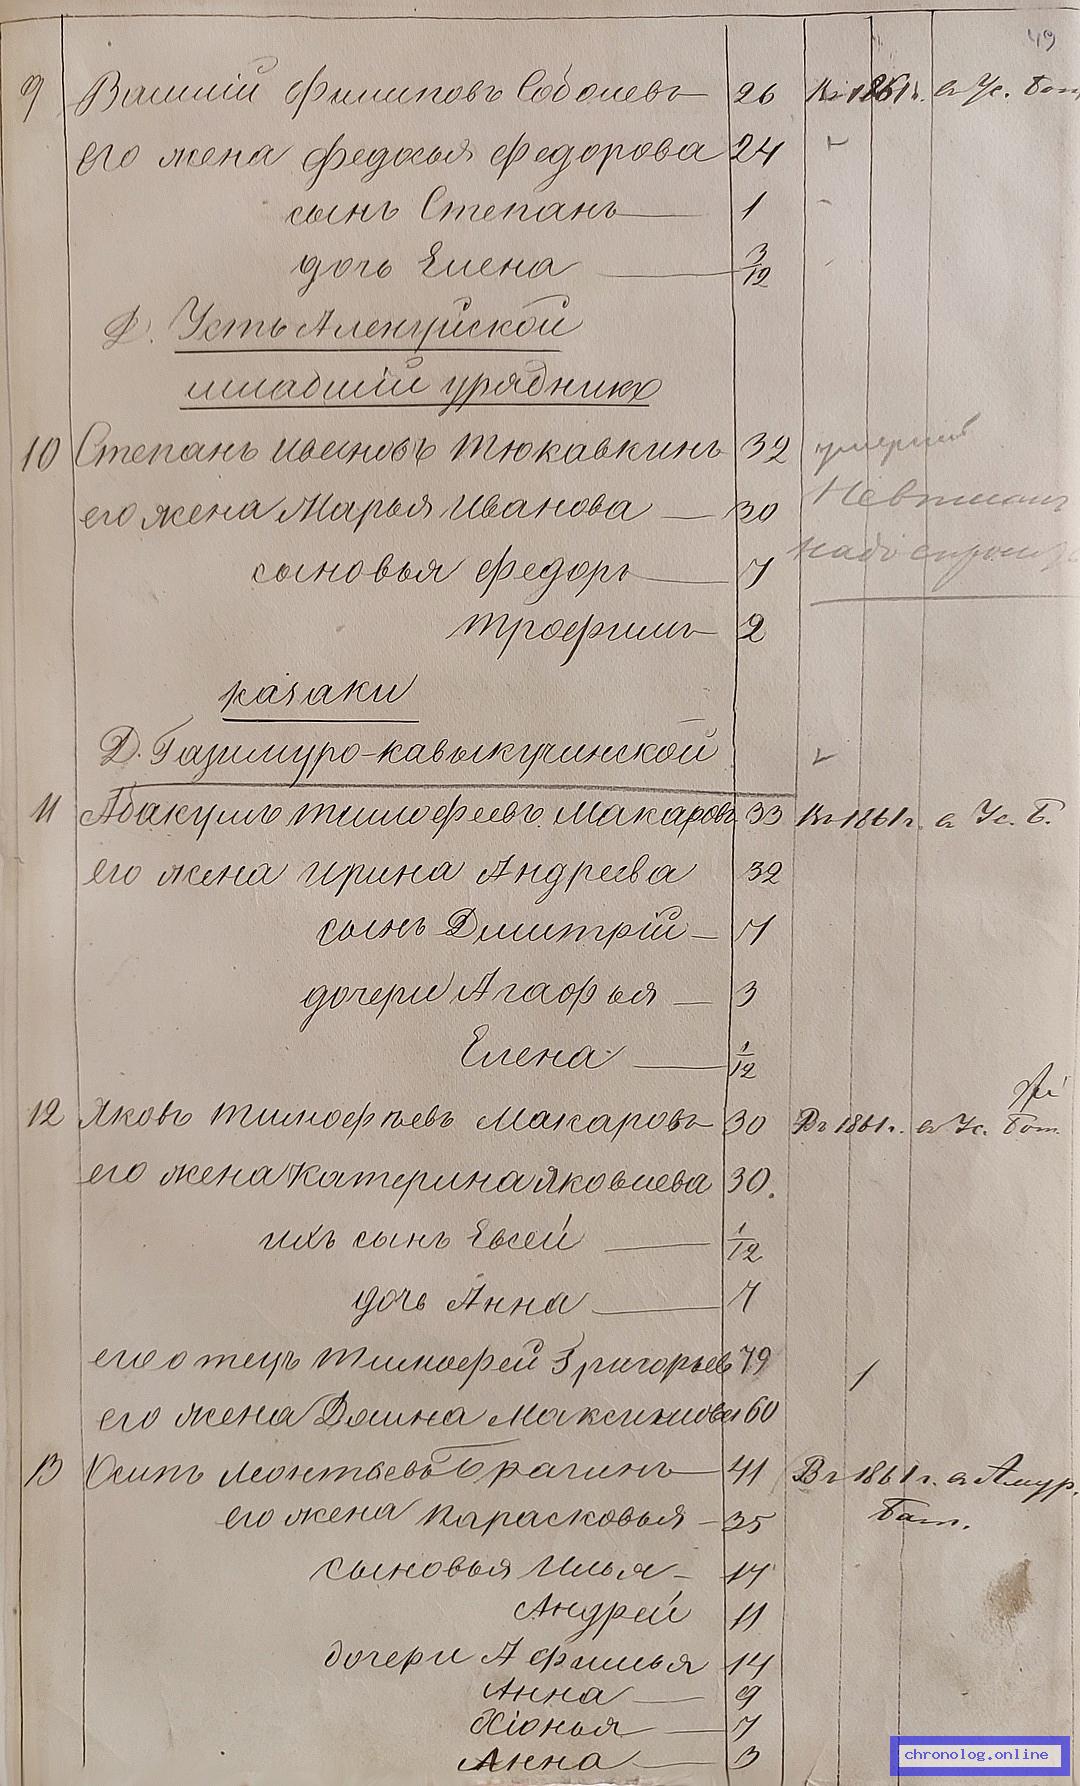 49
9 Василій Филиповъ Соболевъ 26 Въ 1861 г. въ Ус. Бат.
его жена Федосья Федорова 24
сынъ Степанъ 1
дочь Елена 3/12
Д. Усть Аленуйской
младшій урядникъ
10 Степанъ Ивановъ Тюкавкинъ 32 умершій
его жена Марья Иванова 30
надо
сыновья Федоръ 7
Трофимъ 2
казаки
Д. Газимуро-кавыкучинской
11 Абакумъ Тимофеевъ Макаровъ 33 Въ 1861 г. въ Ус. Б.
его жена Ирина Андреева 32
сынъ Дмитрій 7
дочери Агафья 3
Елена 1/12
12 Яковъ Тимофѣевъ Макаровъ 30 Въ 1861 г. въ Ус. Бат.
его жена Катерина Яковлева 30.
ихъ сынъ Евсей 1/12
дочь Анна 7
его отецъ Тимофей Григорьев 79 1
его жена Домна Максимова 60
13 Осипъ Леонтьевъ Брагинъ 41 Въ 1861 г. въ Амур.
Бат.
его жена Парасковья 35
сыновья Илья 17
Андрей 11
дочери Афимья 14
Анна 9
Хіонья 7
Анна 3
chronolog.online